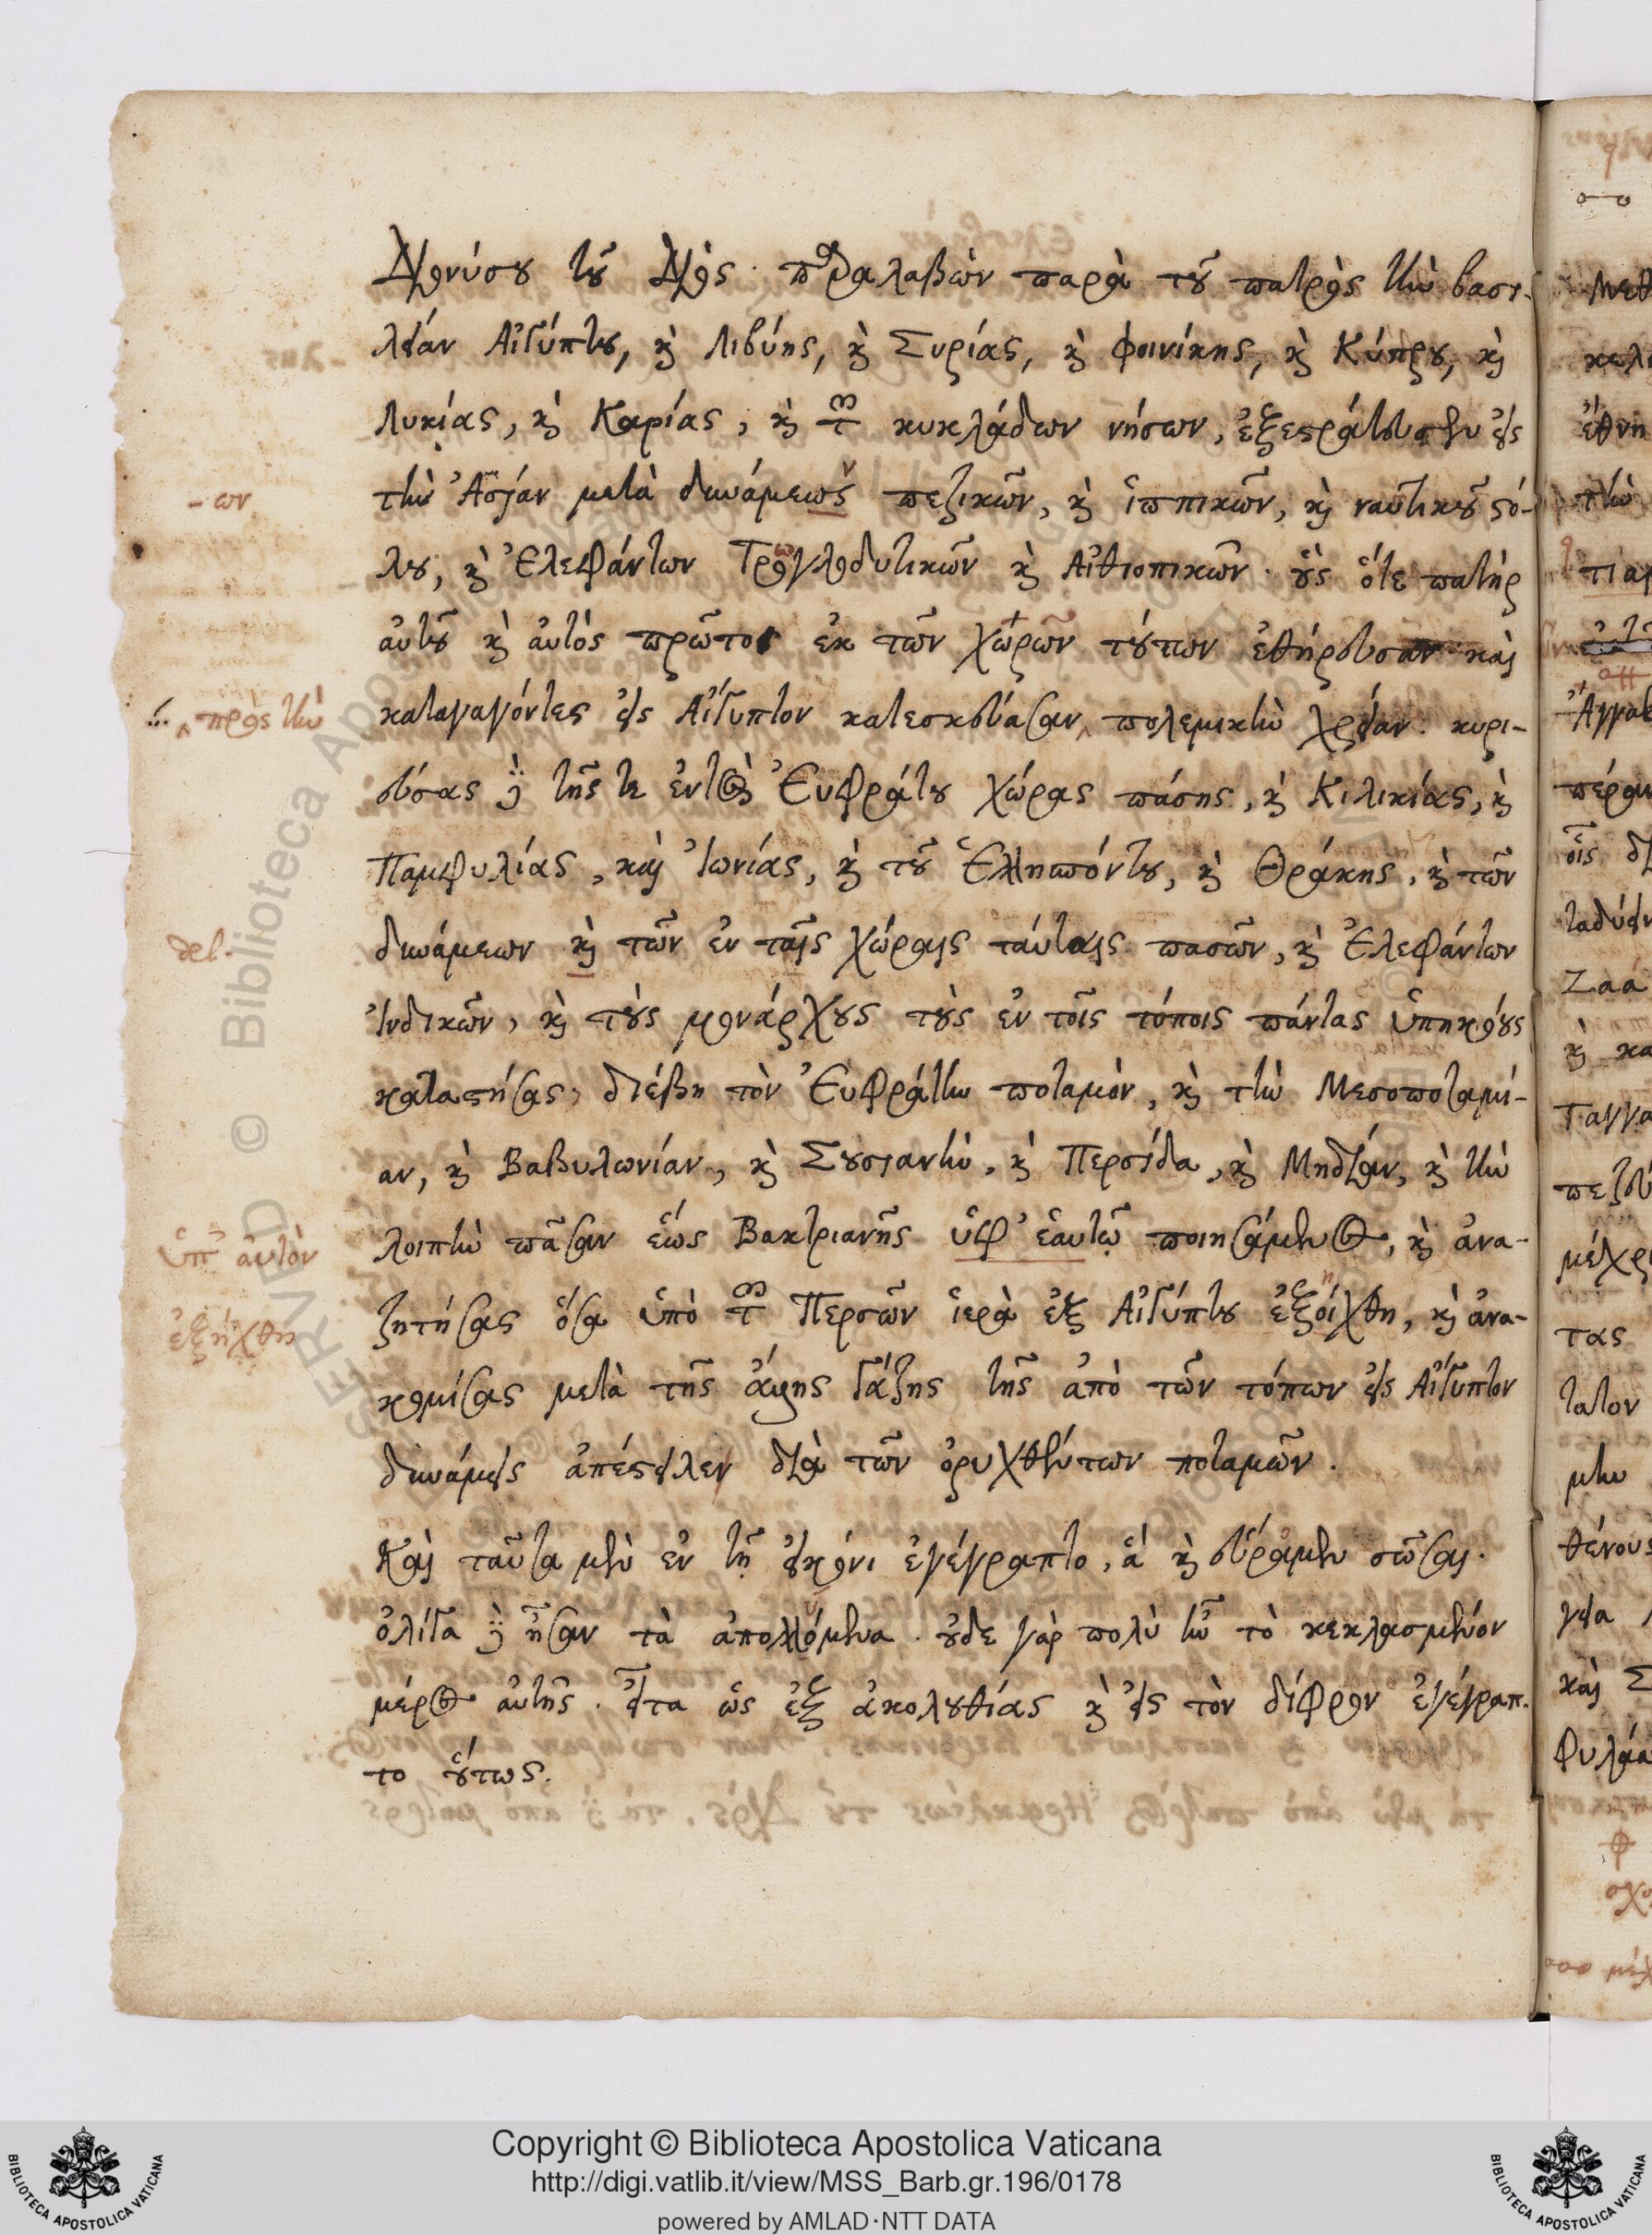 Διονύσου τοῦ Διὸς· παραλαβὼν παρὰ τοῦ πατρὸς τὴν βασι-
λείαν Αἰγύπτου, κὶ Λιβύης, κὶ Συρίας, κὶ φοινίκης, κὶ Κύπρου, κὶ
Λυκίας, κὶ Καρίας, κὶ τῶν κυκλάδων νήσων, ἐξεστράτευσεν εἰς
- ων
τὴν Ἀσίαν μετὰ δυνάμεως πεζικῶν, κὶ ἱππικῶν, κὶ ναυτικοῦ στό-
λου, κὶ Ἐλεφάντων Τρογλοδυτικῶν κὶ Αἰθιοπικῶν· οὓς ὅτε πατὴρ
αὐτοῦ κὶ αὐτός πρῶτος ἐκ τῶν χώρῶν τούτων ἐθήρευσαν καὶ
πρὸς τὴν
καταγαγόντες εἰς Αἴγυπτον κατεσκεύασαν πολεμικὴν χρείαν. κυρι-
εύσας δὲ τῆς τε ἐντὸς Ἐυφράτου χώρας πάσης, κὶ Κιλικίας, κὶ
Παμφυλίας, καὶ Ἰωνίας, κὶ τοῦ Ἑλλησπόντου, κὶ Θράκης, κὶ τῶν
del.
δυνάμεων κὶ τῶν ἐν ταῖς χώραις ταύταις πασῶν, κὶ Ἐλεφάντων
Ἰνδικῶν, κὶ τοὺς μονάρχους τοὺς ἐν τοῖς τόποις πάντας ὑπηκόους
καταστήσας, διέβη τὸν Ἐυφράτην ποταμὸν, κὶ τὴν Μεσοποταμί-
αν, κὶ Βαβυλωνίαν, κὶ Σουσιανὴν, κὶ Περσίδα, κὶ Μηδίαν, κὶ τὴν
ὑπ' αὑτὸν
λοιπὴν πᾶσαν ἕως Βακτριανῆς ὑφ' ἑαυτῷ ποιησάμενος, κὶ ἀνα-
ἐξήχθη
ζητήσας ὅσα ὑπὸ τῶν Περσῶν ἱερὰ ἐξ Αἰγύπτου ἐξοίχθη, κὶ ἀνα-
κομίσας μετὰ τῆς ἄλλης γάζης τῆς ἀπὸ τῶν τόπων εἰς Αἴγυπτον
δυνάμεις ἀπέστειλεν διὰ τῶν ὀρυχθέντων ποταμῶν.
Καὶ ταῦτα μὲν ἐν τῇ εἰκόνι ἐγέγραπτο, ἃ κὶ εὕραμεν σῶσαι.
ὀλίγα δὲ ἦσαν τὰ ἀπολλόμενα. οὐδε γὰρ πολὺ ἦν τὸ κεκλασμένον
μέρος αὐτῆς. εἶτα ὡς ἐξ ἀκολουθίας κὶ εἰς τὸν δίφρον ἐγέγραπ-
το οὕτως.
Copyright © Biblioteca Apostolica Vaticana
http://digi.vatlib.it/view/MSS_Barb.gr.196/0178
powered by AMLAD·NTT DATA
BIBLIOTECA APOSTOLICA VATICANA
BIBLIOTECA APOSTOLICA VATICANA